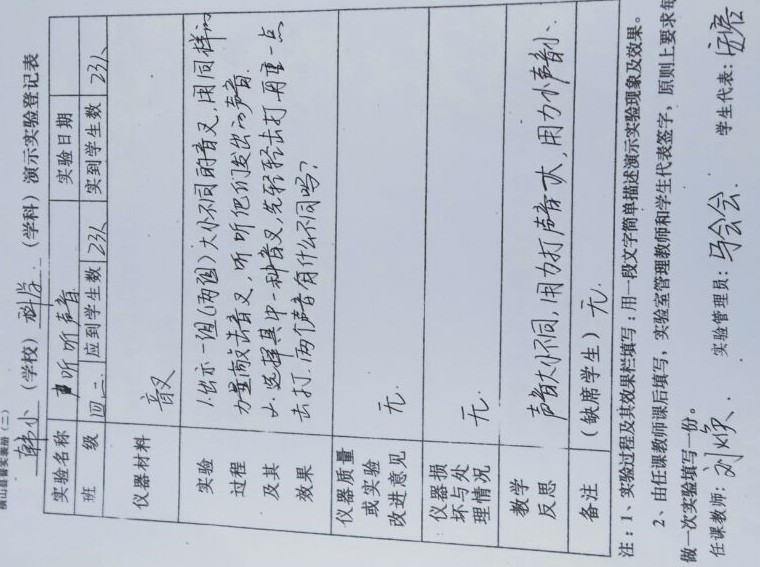 横山县督实表册（二）
韩小（学校）科学（学科）演示实验登记表
实验名称 听听声音 实验日期
班级 四二 应到学生数 23人 实到学生数 23人
仪器材料 音叉
实验过程及其效果
1.出示一组(两个)大小不同的音叉,用同样的
力量敲击音叉,听听他们发出的声音.
2.选择其中一种音叉,先轻轻击打再重一点
击打.两个声音有什么不同吗?
仪器质量或实验改进意见 无.
仪器损坏与处理情况 无.
教学反思 声音大小不同,用力打声音大,用力小声音小.
备注 （缺席学生）无.
注：1、实验过程及其效果栏填写：用一段文字简单描述演示实验现象及效果。
2、由任课教师课后填写，实验室管理教师和学生代表签字，原则上要求每
做一次实验填写一份。
任课教师：刘焕. 实验管理员：马会会. 学生代表：